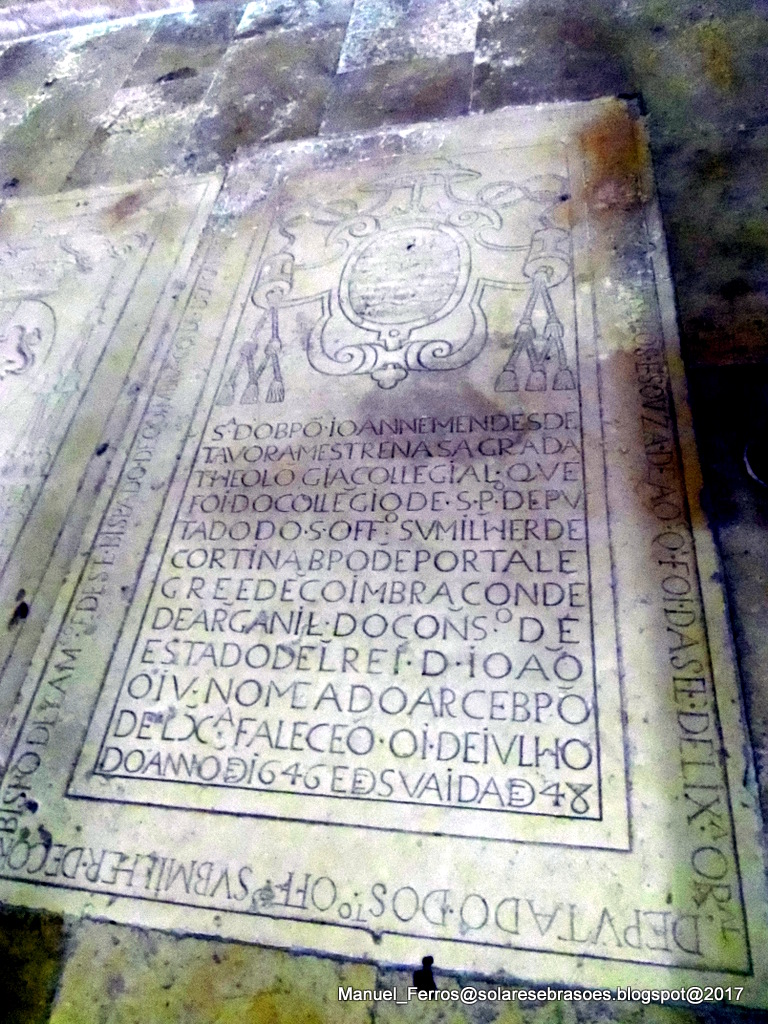 SA DOBPÕ·IOANNEMENDESDE
TAVORAMESTRENASAGRADA
THEOLOGIACOLLEGIAL·QVE
FOI·DOCOLLEGIODE·S·P·DEPV
TADODO·S·OFFO·SVMILHERDE
CORTINABPODEPORTALE
GREEDECOIMBRACONDE
DEARGANIL·DOCONSO·DE
ESTADODELREI·D·IOAÕ
OIV·NOMEADOARCEBPÕ
DELXA·FALECEO·OI·DEIVLHO
DOANNODE1646EDESVAIDADE48
DESOVZADEAO·O·FOI·DASEE·DELIXA·
DEPVTADO·DOSTO·OFFO·SVBMILHER·DECOR
BISPODLEYAM
EDESTEBISPADODECOIMBRA
Manuel_Ferros@solaresebrasoes.blogspot@2017